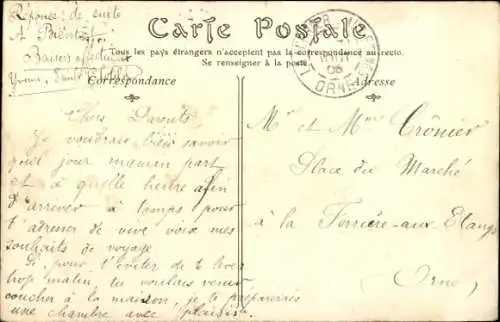 Réponse de suite
A Bientôt
Baisers affectueux
Yvonne
Carte Postale
Tous les pays étrangers n'acceptent pas la correspondance au recto.
Se renseigner à la poste.
Correspondance
Adresse
ORNE
Chers Parents
Je voudrais bien savoir
quel jour maman part
et à quelle heure afin
d'arriver à temps pour
t'adresser de vive voix mes
souhaits de voyage
Si pour t'éviter de te lever
trop matin, tu voulais venir
coucher à la maison, je te préparerais
une chambre avec plaisir.
Mr et Mme Crônier
Place du Marché
à la Ferrière-aux Etangs
(Orne)